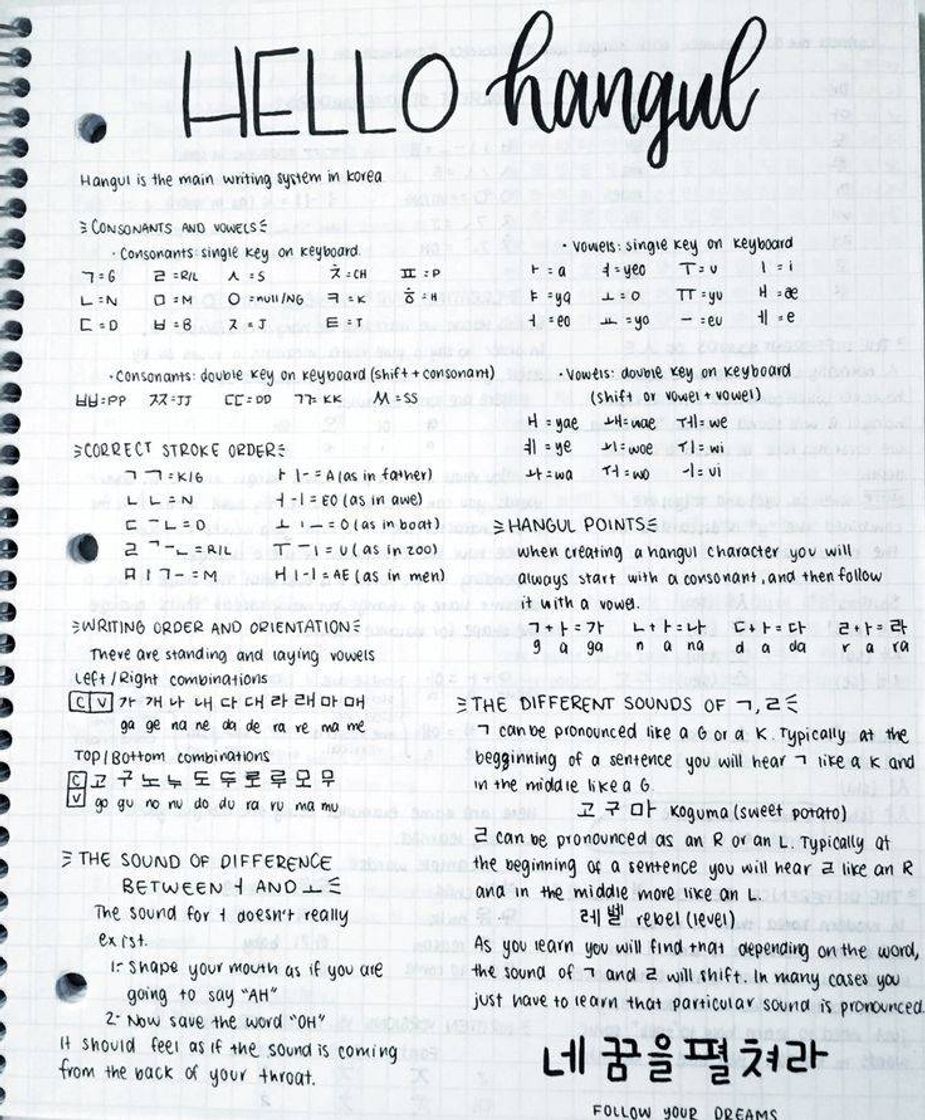 HELLO hangul
Hangul is the main writing system in Korea
CONSONANTS AND VOWELS
· Consonants: single key on keyboard.
ㄱ=G ㄹ=R/L ㅅ=S ㅊ=CH ㅍ=P
ㄴ=N ㅁ=M ㅇ=null/NG ㅋ=K ㅎ=H
ㄷ=D ㅂ=B ㅈ=J ㅌ=T
· Consonants: double key on keyboard (shift + consonant)
ㅃ=PP ㅉ=JJ ㄸ=DD ㄲ=KK ㅆ=SS
· Vowels: single key on keyboard
ㅏ=a ㅕ=yeo ㅜ=u ㅣ=i
ㅑ=ya ㅗ=o ㅠ=yu ㅐ=æ
ㅓ=eo ㅛ=yo ㅡ=eu ㅔ=e
· Vowels: double key on keyboard
(shift or vowel + vowel)
ㅒ=yae ㅙ=wae ㅞ=we
ㅖ=ye ㅚ=woe ㅟ=wi
ㅘ=wa ㅝ=wo ㅢ=ui
CORRECT STROKE ORDER
ㄱ ㄱ=K/G ㅏ ㅣ-=A (as in father)
ㄴ ㄴ=N ㅓ -ㅣ=EO (as in awe)
ㄷ ㅡㄴ=D ㅗ ㅣㅡ=O (as in boat)
ㄹ ㄱㅡㄴ=R/L ㅜ ㅡㅣ=U (as in zoo)
ㅁ ㅣㄱㅡ=M ㅐ ㅣ-ㅣ=AE (as in men)
HANGUL POINTS
when creating a hangul character you will
always start with a consonant, and then follow
it with a vowel.
ㄱ+ㅏ=가 ㄴ+ㅏ=나 ㄷ+ㅏ=다 ㄹ+ㅏ=라
g a ga n a na d a da r a ra
WRITING ORDER AND ORIENTATION
There are standing and laying vowels
Left/Right combinations
C V 가 개 나 내 다 대 라 래 마 매
ga ge na ne da de ra re ma me
Top/Bottom combinations
C 고 구 노 누 도 두 로 루 모 무
V go gu no nu do du ra ru ma mu
THE SOUND OF DIFFERENCE
BETWEEN ㅓ AND ㅗ
The sound for ㅓ doesn't really
exist.
1- Shape your mouth as if you are
going to say "AH"
2- Now save the word "OH"
It should feel as if the sound is coming
from the back of your throat.
THE DIFFERENT SOUNDS OF ㄱ, ㄹ
ㄱ can be pronounced like a G or a K. Typically at the
begginning of a sentence you will hear ㄱ like a K and
in the middle like a G.
고구마 Koguma (sweet potato)
ㄹ can be pronounced as an R or an L. Typically at
the beginning of a sentence you will hear ㄹ like an R
and in the middle more like an L.
레벨 rebel (level)
As you learn you will find that depending on the word,
the sound of ㄱ and ㄹ will shift. In many cases you
just have to learn that particular sound is pronounced.
네 꿈을 펼쳐라
FOLLOW YOUR DREAMS